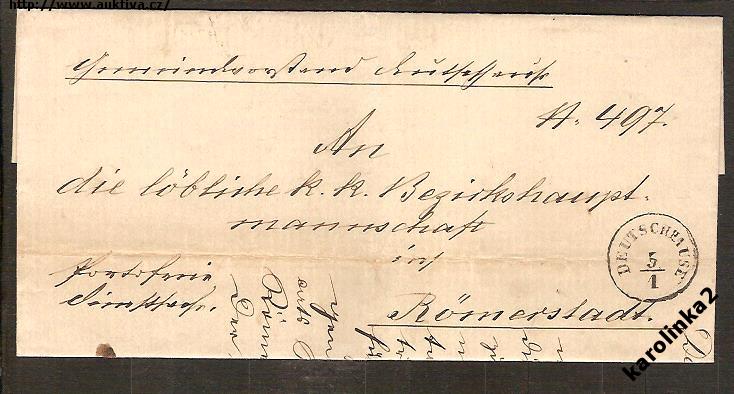 http://www.auktiva.cz/
Gemeindevorstand Deutschhause
N. 497.
An
die löbliche k. k. Bezirkshaupt-
mannschaft
in
Römerstadt.
Portofreie
Dienstsache.
DEUTSCHHAUSE
5
1
karolinka2